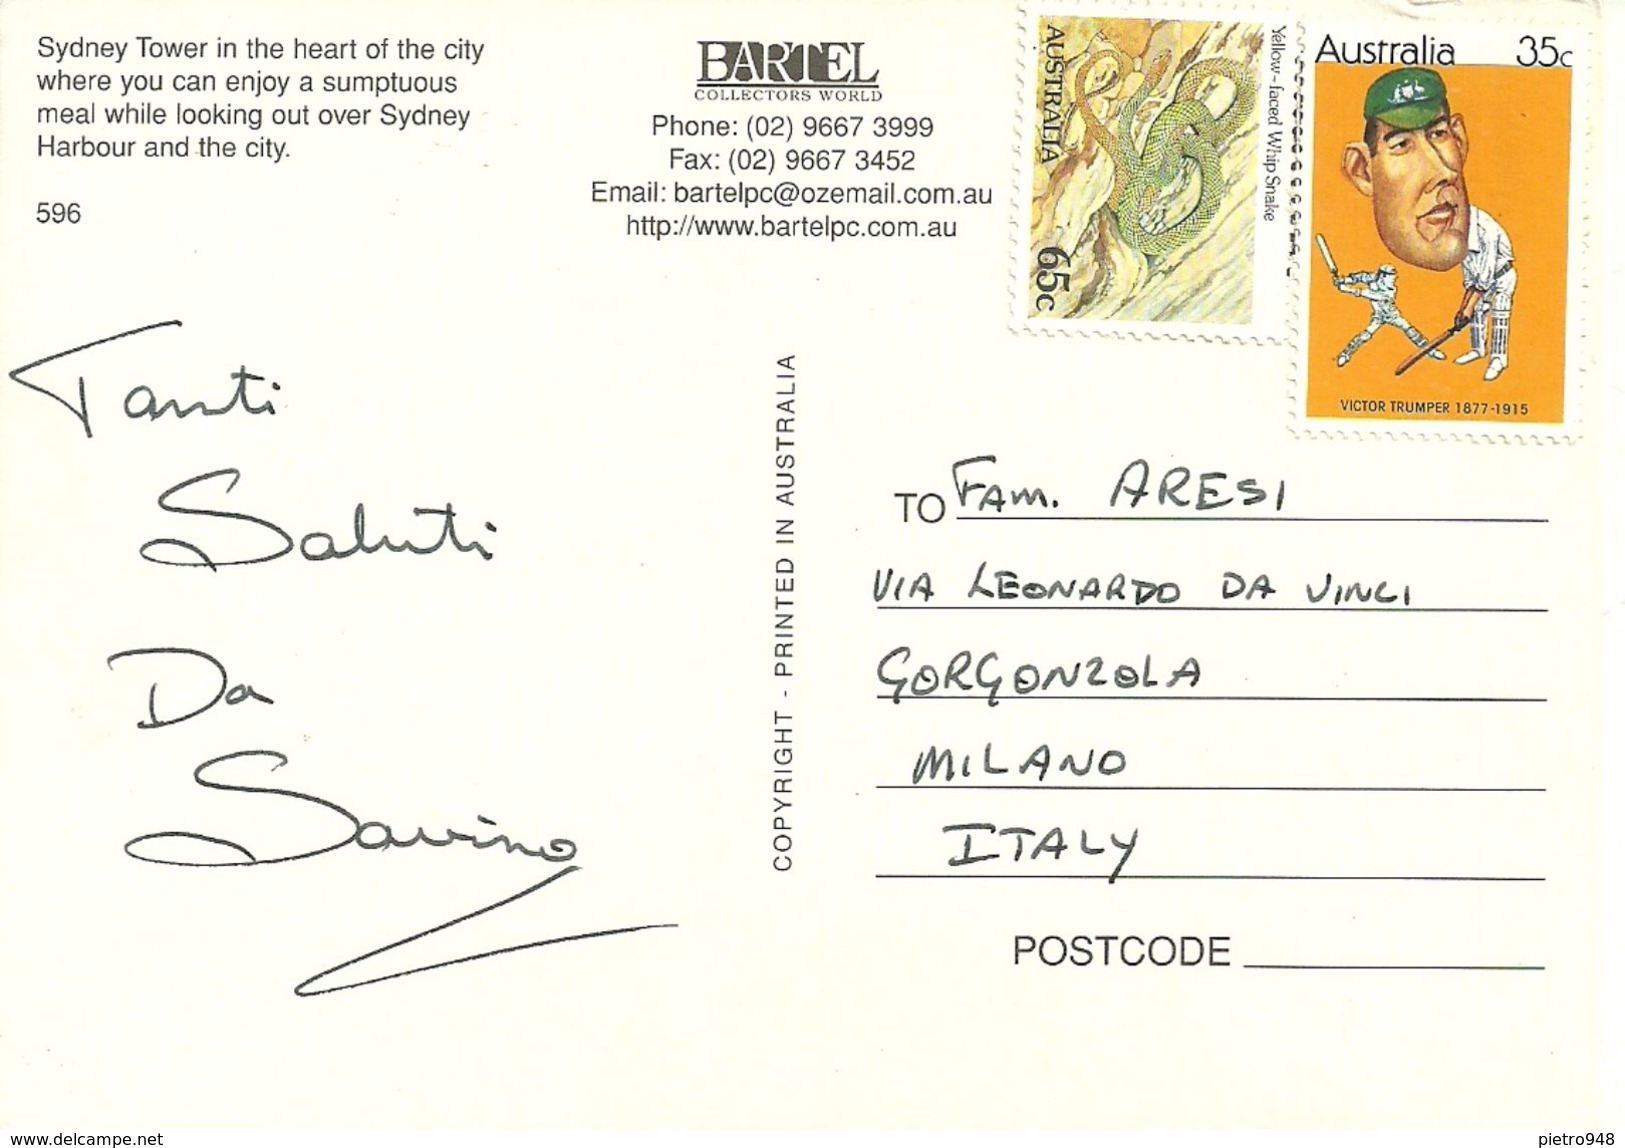 Sydney Tower in the heart of the city
where you can enjoy a sumptuous
meal while looking out over Sydney
Harbour and the city.
596
BARTEL
COLLECTORS WORLD
Phone: (02) 9667 3999
Fax: (02) 9667 3452
Email: bartelpc@ozemail.com.au
http://www.bartelpc.com.au
AUSTRALIA
65c
Yellow-faced Whip Snake
Australia 35c
VICTOR TRUMPER 1877-1915
Tanti
Saluti
Da
Savino
COPYRIGHT - PRINTED IN AUSTRALIA
TO FAM. ARESI
VIA LEONARDO DA VINCI
GORGONZOLA
MILANO
ITALY
POSTCODE
www.delcampe.net
pietro948